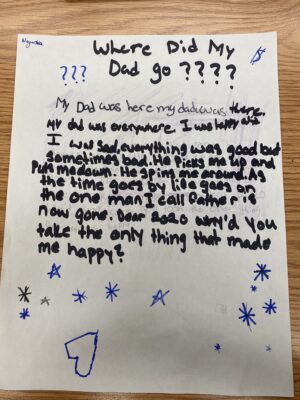 Where Did My
??? Dad go ????
My Dad was here my dad was there,
my dad was everywhere. I was happy and
I wn sad, everything was good but
sometimes bad. He Picks me up and
Puts me down. He spins me around. As
the time goes by life goes on
the one man I call father is
now gone. Dear 2020 why'd you
take the only thing that made
me happy?